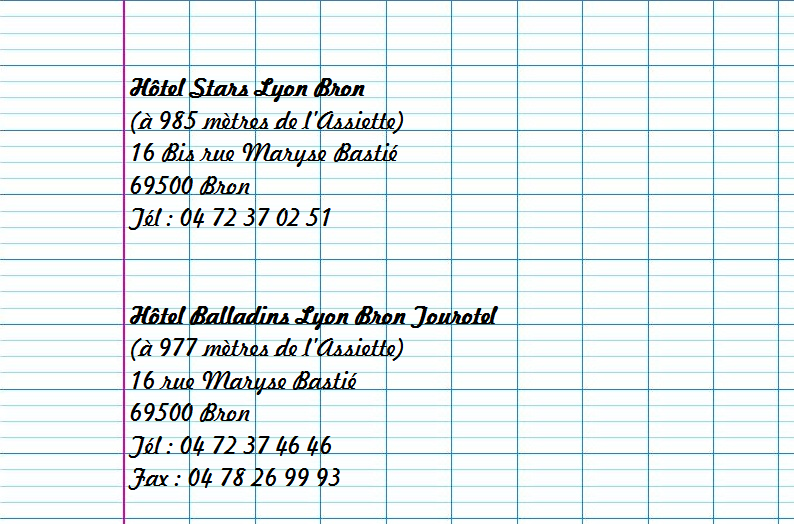 Hôtel Stars Lyon Bron
(à 985 mètres de l'Assiette)
16 Bis rue Maryse Bastié
69500 Bron
Tél : 04 72 37 02 51
Hôtel Balladins Lyon Bron Tourotel
(à 977 mètres de l'Assiette)
16 rue Maryse Bastié
69500 Bron
Tél : 04 72 37 46 46
Fax : 04 78 26 99 93